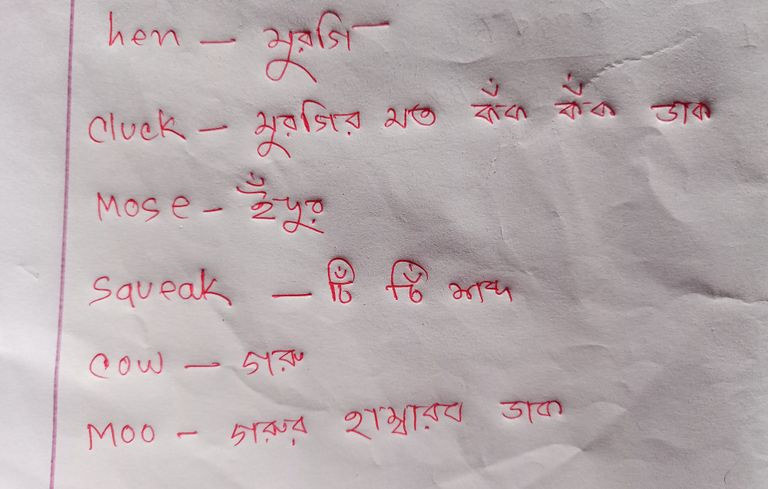 hen – মুরগি
Cluck – মুরগির মত কঁক কঁক ডাক
Mose – ইঁদুর
Squeak – চিঁ চিঁ শব্দ
Cow – গরু
Moo – গরুর হাম্বারব ডাক